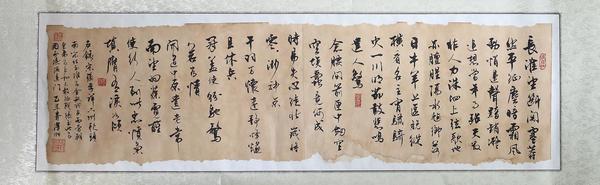 長淮望斷關塞莽
然平征塵暗霜風
勁悄邊聲黯銷凝
追想當年事殆天數
非人力洙泗上弦歌地
亦膻腥隔水氈鄉落
日牛羊下區脫縱
橫看名王宵獵騎
火一川明笳鼓悲鳴
遣人驚
念腰間箭匣中劍
空埃蠹竟何成
時易失心徒壯歲將
零渺神京
干羽方懷遠靜烽燧
且休兵
冠蓋使紛馳騖
若為情
聞道中原遺老常
南望翠葆霓旌
使行人到此忠憤氣
填膺有淚如傾
右錄宋張孝祥六州歌頭